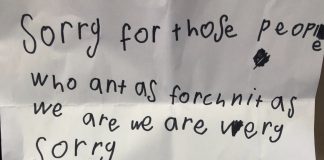 Sorry for those people
who ant as forchnit as
we are we are very
sorry